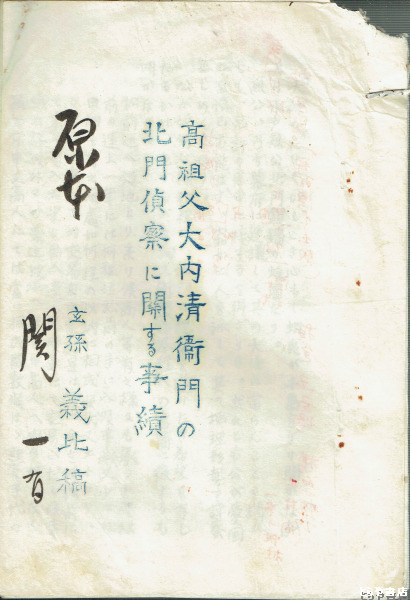 高祖父大内清衞門の
北門偵察に關する事績
原本
玄孫 義比稿
関 一有